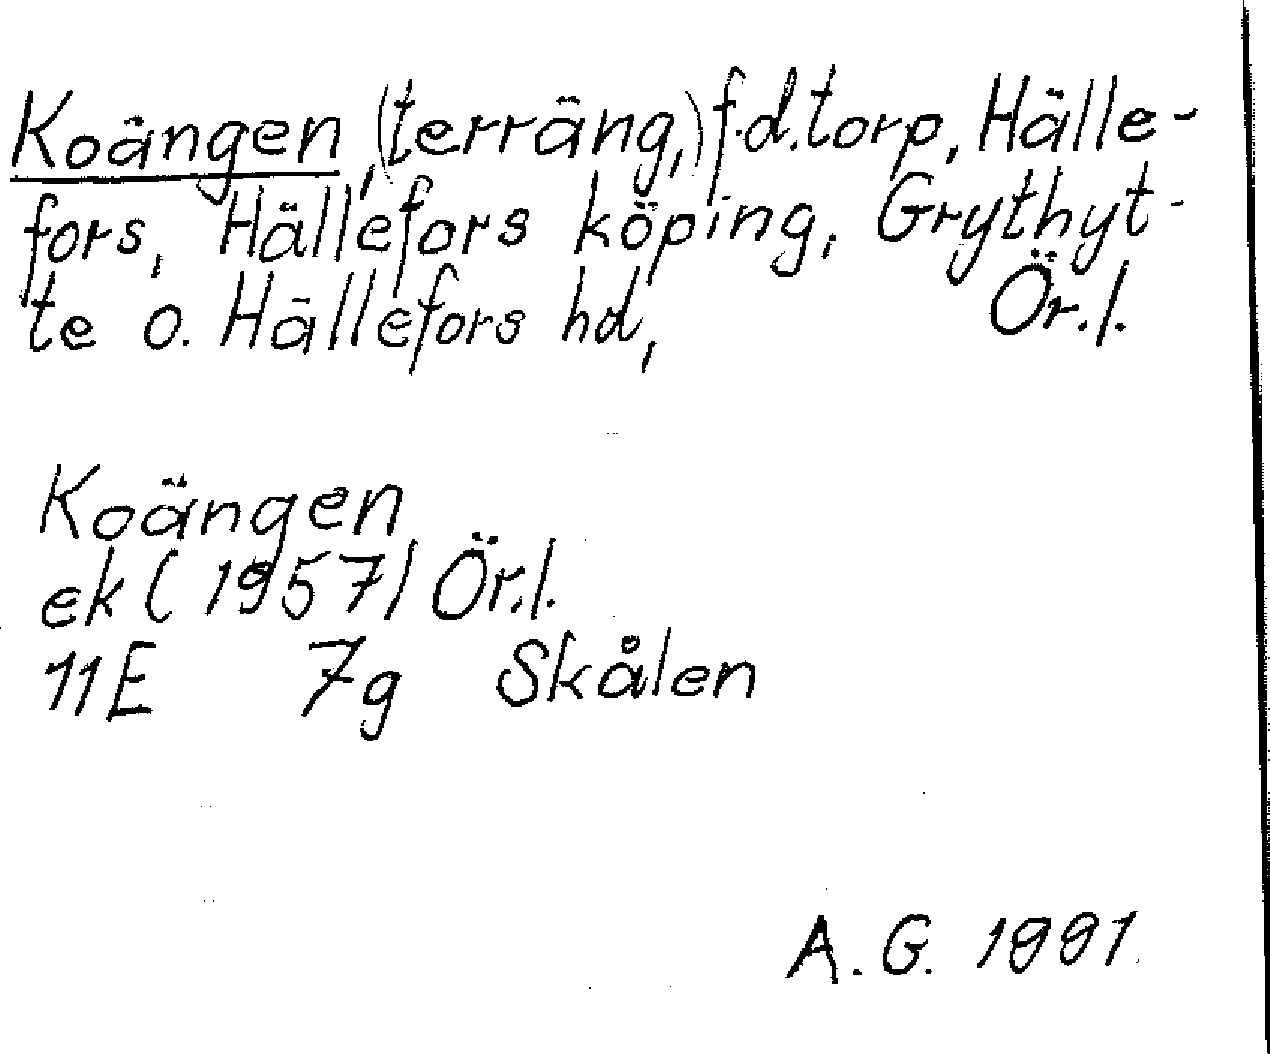 Koängen, (terräng,) f.d. torp, Hälle-
fors, Hällefors köping, Grythyt-
te o. Hällefors hd, Ör.l.
Koängen
ek (1957) Ör.l.
11E 7g Skålen
A.G. 1991.